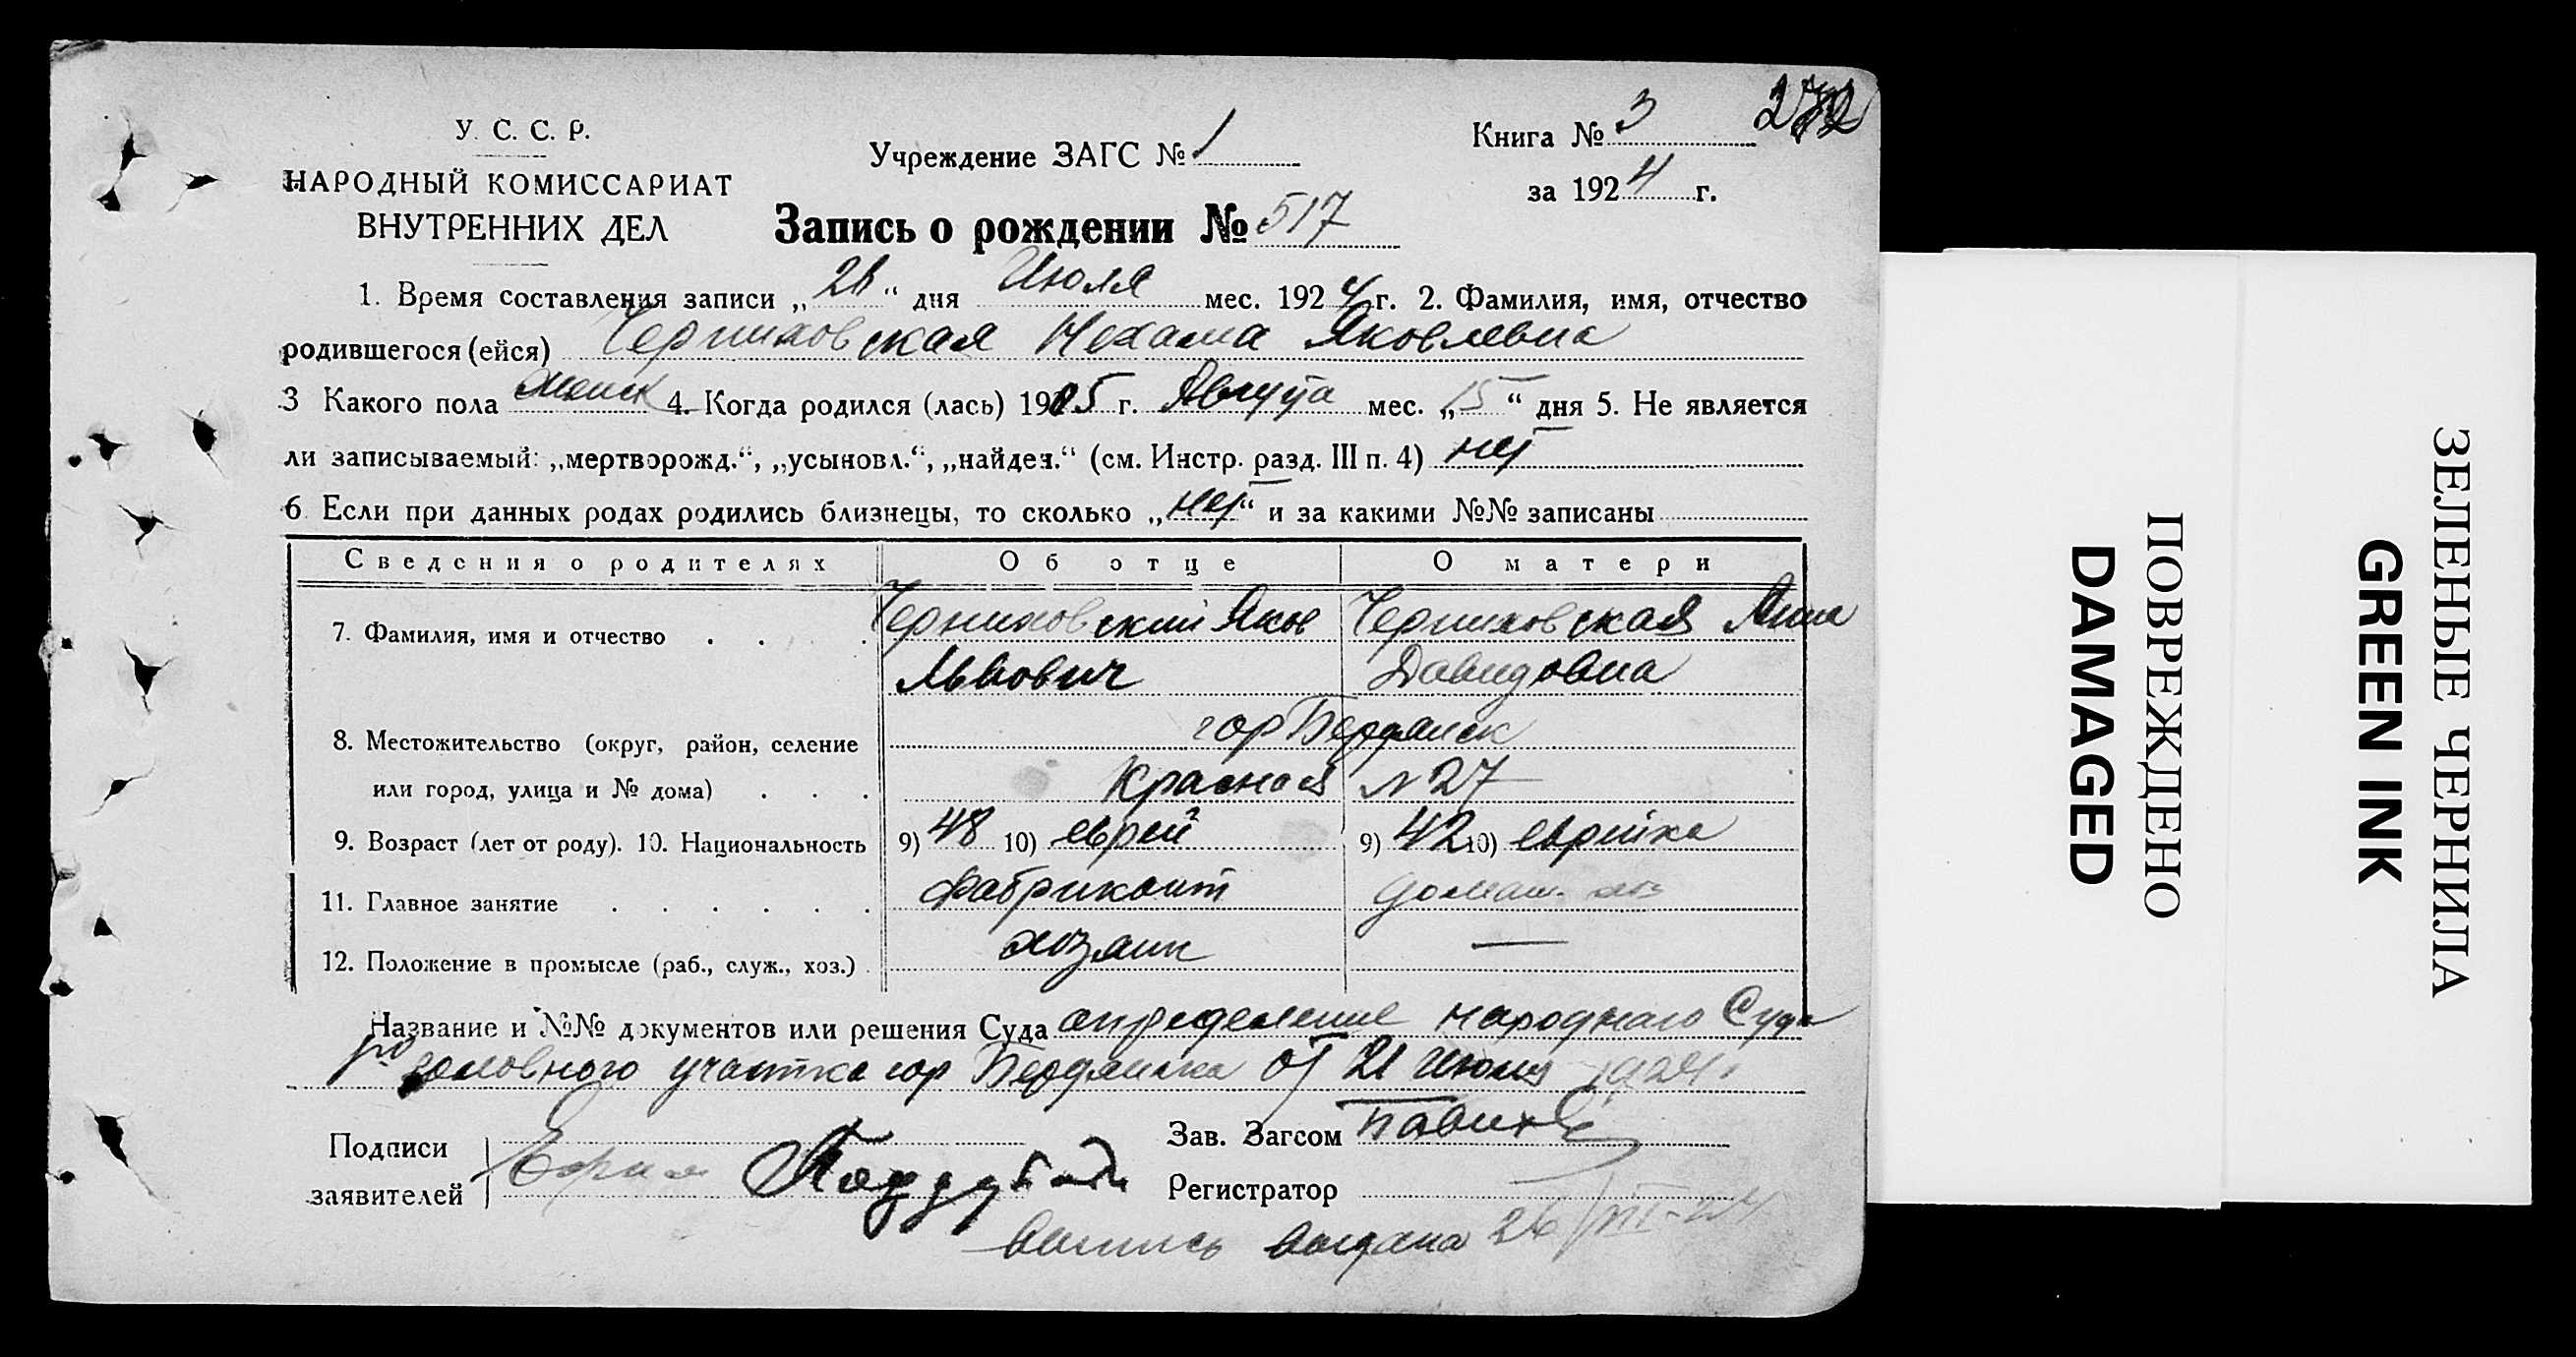 У. С. С. Р.
НАРОДНЫЙ КОМИССАРИАТ
ВНУТРЕННИХ ДЕЛ
Учреждение ЗАГС № 1
Книга № 3
за 1924 г.
Запись о рождении № 517
1. Время составления записи „ “ дня Июля мес. 1924 г. 2. Фамилия, имя, отчество
родившегося (ейся) Черниховская Нехама Яковлевна
3 Какого пола женск 4. Когда родился (лась) 1905 г. Августа мес. „15“ дня 5. Не является
ли записываемый: „мертворожд.“, „усыновл.“, „найден.“ (см. Инстр. разд. III п. 4) нет
6 Если при данных родах родились близнецы, то сколько „нет“ и за какими №№ записаны
Сведения о родителях Об отце О матери
7. Фамилия, имя и отчество Черниховский Яков Черниховская Анна
Львович Давидовна
8. Местожительство (округ, район, селение гор Бердянск
или город, улица и № дома) Красная № 27
9. Возраст (лет от роду). 10. Национальность 9) 48 10) еврей 9) 42 10) еврейка
11. Главное занятие фабрикант домаш. хоз
12. Положение в промысле (раб., служ., хоз.) хозяин —
Название и №№ документов или решения Суда определение народнаго Суда
участка гор Бердянска от 21 1924
Подписи
заявителей
Зав. Загсом
Регистратор
выдана
ПОВРЕЖДЕНО
DAMAGED
ЗЕЛЕНЫЕ ЧЕРНИЛА
GREEN INK